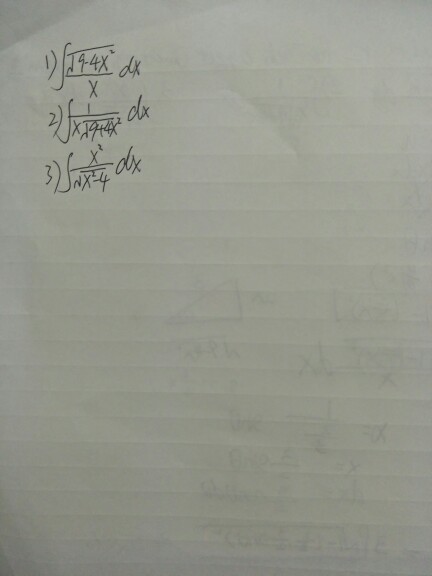 1) ∫ √(9-4x²) / x dx
2) ∫ 1 / (x√(9+4x²)) dx
3) ∫ x² / √(x²-4) dx